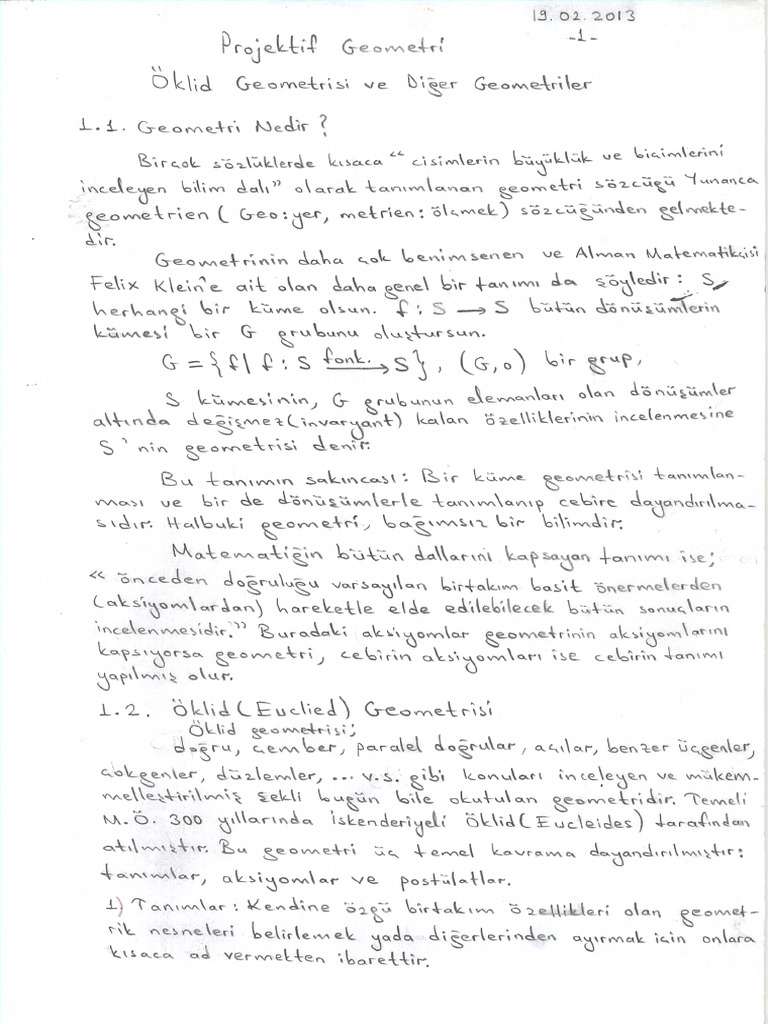 19.02.2013
-1-
Projektif Geometri
Öklid Geometrisi ve Diğer Geometriler
1.1. Geometri Nedir?
Birçok sözlüklerde kısaca "cisimlerin büyüklük ve biçimlerini
inceleyen bilim dalı" olarak tanımlanan geometri sözcüğü Yunanca
geometrien (Geo:yer, metrien:ölçmek) sözcüğünden gelmekte-
dir.
Geometrinin daha çok benimsenen ve Alman Matematikçisi
Felix Klein'e ait olan daha genel bir tanımı da şöyledir: S,
herhangi bir küme olsun. f: S → S bütün dönüşümlerin
kümesi bir G grubunu oluştursun.
G = {f| f: S fonk.→ S}, (G,o) bir grup,
S kümesinin, G grubunun elemanları olan dönüşümler
altında değişmez (invaryant) kalan özelliklerinin incelenmesine
S'nin geometrisi denir.
Bu tanımın sakıncası: Bir küme geometrisi tanımlan-
ması ve bir de dönüşümlerle tanımlanıp cebire dayandırılma-
sıdır. Halbuki geometri, bağımsız bir bilimdir.
Matematiğin bütün dallarını kapsayan tanımı ise;
"önceden doğruluğu varsayılan birtakım basit önermelerden
(aksiyomlardan) hareketle elde edilebilecek bütün sonuçların
incelenmesidir." Buradaki aksiyomlar geometrinin aksiyomlarını
kapsıyorsa geometri, cebirin aksiyomları ise cebirin tanımı
yapılmış olur.
1.2. Öklid (Euclied) Geometrisi
Öklid geometrisi;
doğru, çember, paralel doğrular, açılar, benzer üçgenler,
çokgenler, düzlemler, ... v.s. gibi konuları inceleyen ve mükem-
melleştirilmiş şekli bugün bile okutulan geometridir. Temeli
M.Ö. 300 yıllarında İskenderiyeli Öklid (Eucleides) tarafından
atılmıştır. Bu geometri üç temel kavrama dayandırılmıştır:
tanımlar, aksiyomlar ve postülatlar.
1) Tanımlar: Kendine özgü birtakım özellikleri olan geomet-
rik nesneleri belirlemek yada diğerlerinden ayırmak için onlara
kısaca ad vermekten ibarettir.